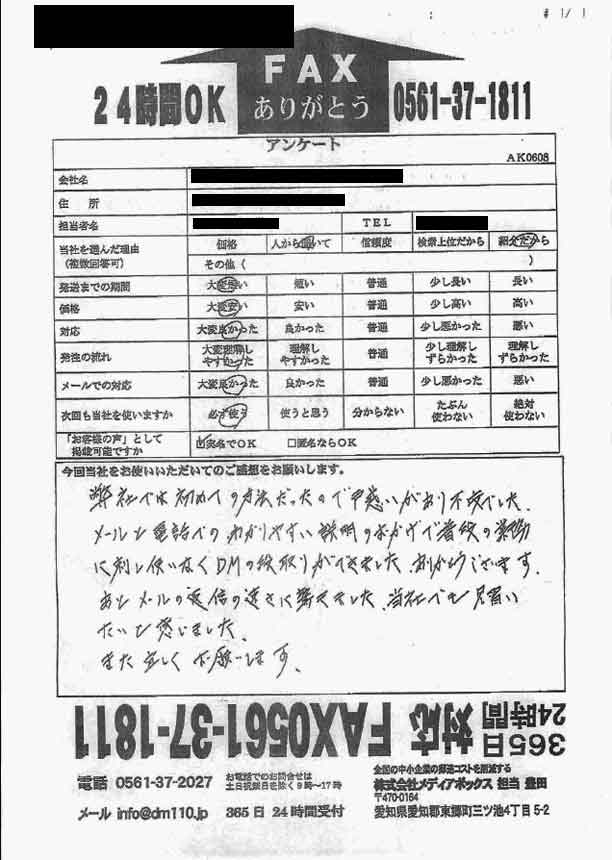 # 1/ 1
FAX
24時間OK ありがとう 0561-37-1811
アンケート
AK0608
会社名
住 所
担当者名 TEL
当社を選んだ理由 (複数回答可) 価格 人から聞いて 信頼度 検索上位だから 紹介だから
その他 ( )
発送までの期間 大変短い 短い 普通 少し長い 長い
価格 大変安い 安い 普通 少し高い 高い
対応 大変良かった 良かった 普通 少し悪かった 悪い
発注の流れ 大変理解しやすかった 理解しやすかった 普通 少し理解しずらかった 理解しずらかった
メールでの対応 大変良かった 良かった 普通 少し悪かった 悪い
次回も当社を使いますか 必ず使う 使うと思う 分からない たぶん使わない 絶対使わない
「お客様の声」として掲載可能ですか ☑実名でOK □匿名ならOK
今回当社をお使いいただいてのご感想をお願いします。
弊社では初めての方法だったので戸惑いがあり不安でした。
メールと電話でのわかりやすい説明のおかげで普段の業務
に差し支いなくDMの段取りができました。ありがとうございます。
あと メールの返信の速さに驚きました。当社でも見習い
たいと感じました。
また宜しくお願いします。
365日 24時間 対応 FAX0561-37-1811
電話 0561-37-2027 お電話でのお問合せは 土日祝祭日を除く9時〜17時
メール info@dm110.jp 365日 24時間受付
全国の中小企業の郵送コストを削減する
株式会社メディアボックス 担当 豊田
〒470-0164
愛知県愛知郡東郷町三ツ池4丁目 5-2